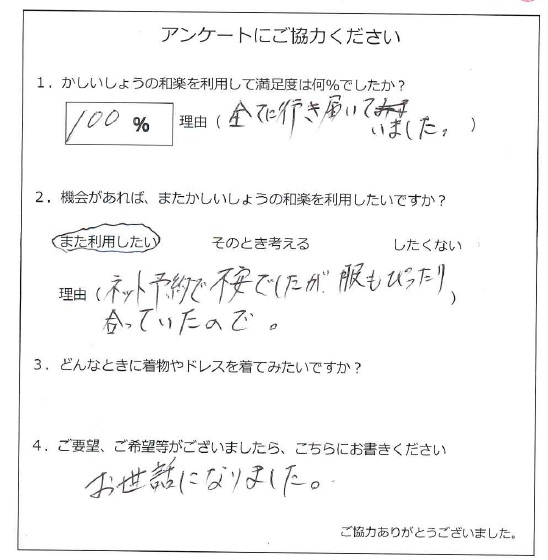 アンケートにご協力ください
1．かしいしょうの和楽を利用して満足度は何％でしたか？
100 % 理由（ 全てに行き届いて
いました。 ）
2．機会があれば、またかしいしょうの和楽を利用したいですか？
また利用したい そのとき考える したくない
理由（ ネット予約で不安でしたが服もぴったり ）
合っていたので。
3．どんなときに着物やドレスを着てみたいですか？
4．ご要望、ご希望等がございましたら、こちらにお書きください
お世話になりました。
ご協力ありがとうございました。